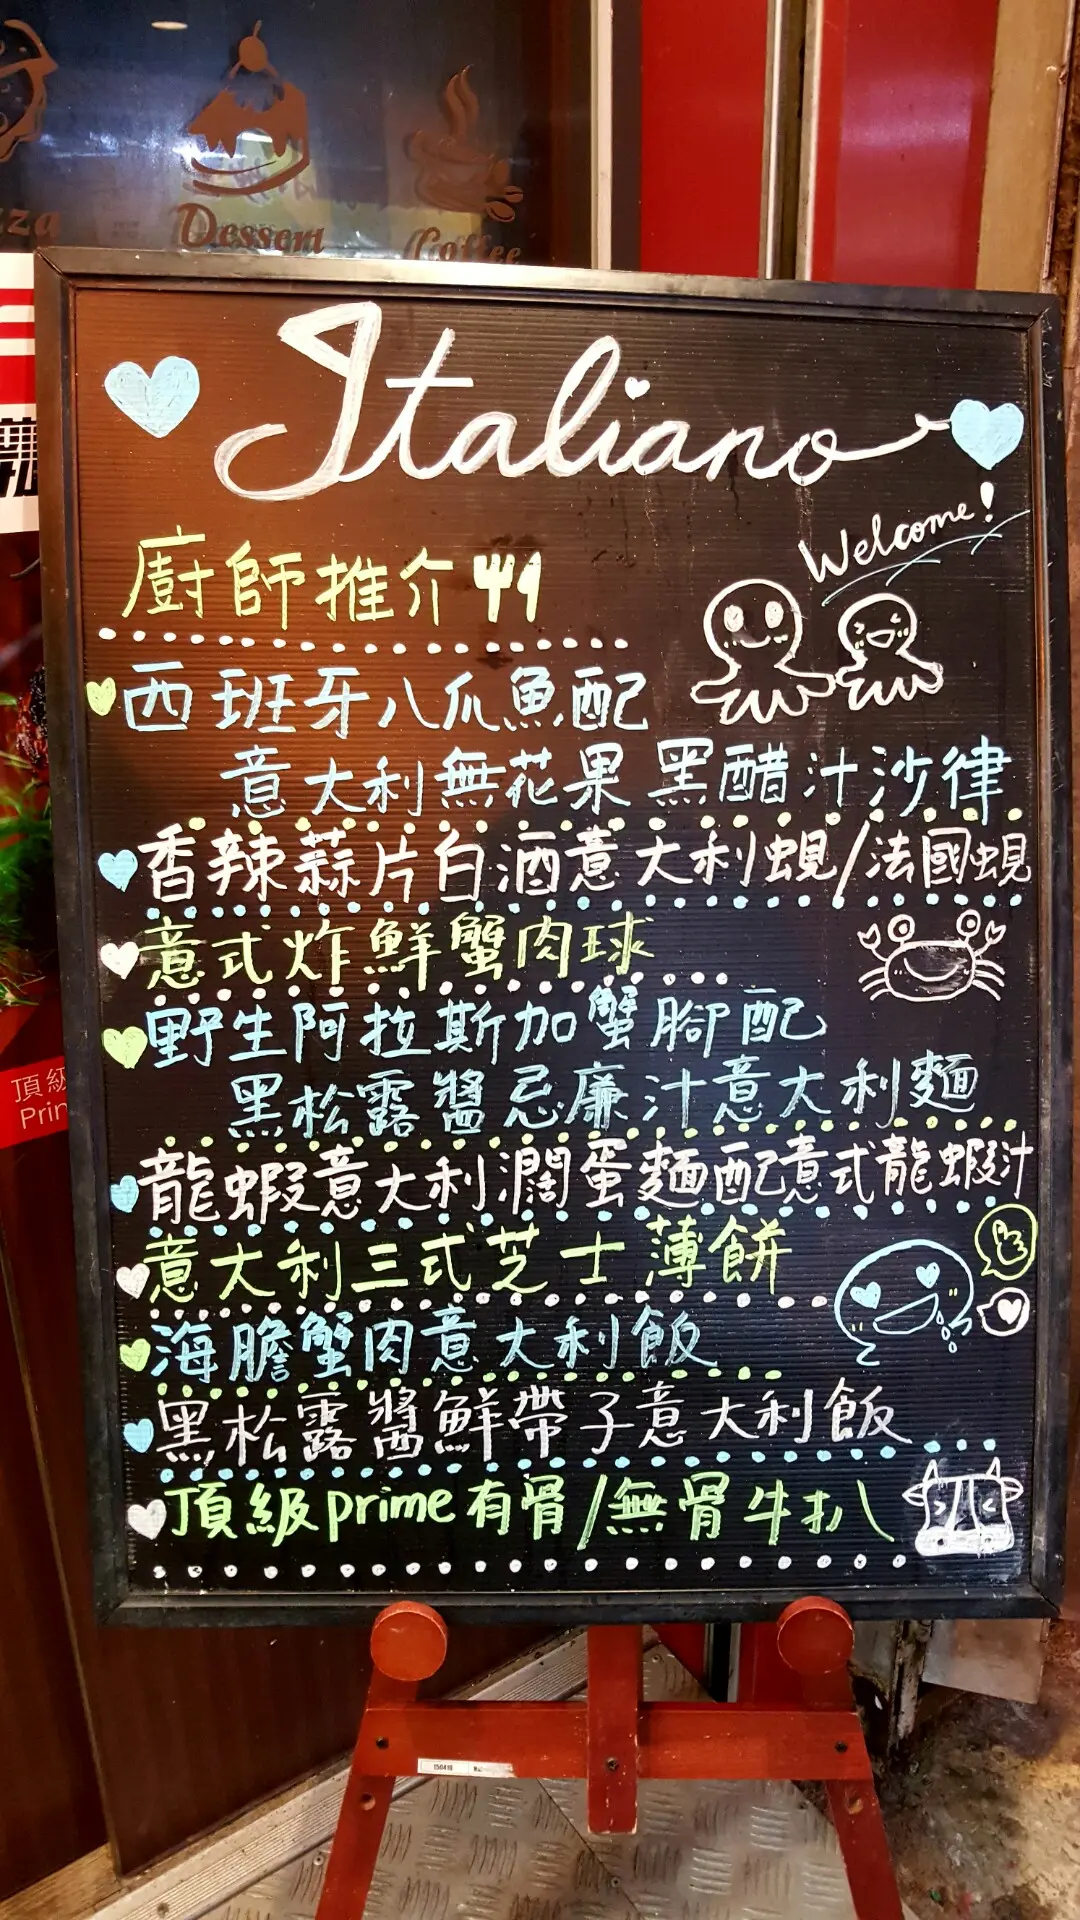 Dessert
Coffee
Italiano
Welcome!
廚師推介
西班牙八爪魚配
意大利無花果黑醋汁沙律
香辣蒜片白酒意大利蜆/法國蜆
意式炸鮮蟹肉球
野生阿拉斯加蟹腳配
黑松露醬忌廉汁意大利麵
龍蝦意大利濶蛋麵配意式龍蝦汁
意大利三式芝士薄餅
海膽蟹肉意大利飯
黑松露醬鮮帶子意大利飯
頂級prime有骨/無骨牛扒
頂級